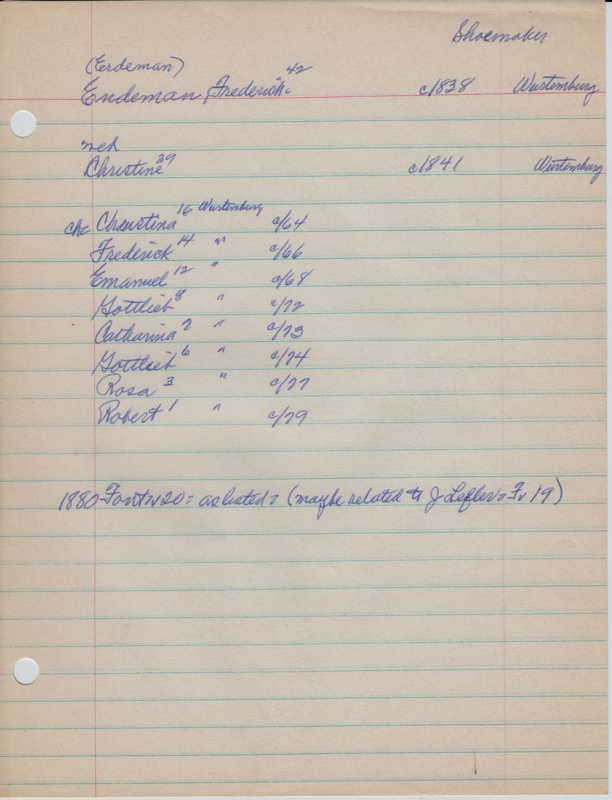 Shoemaker
(Erdeman)
Endeman, Frederick 42 c1838 Wurtemburg
meh
Christine 39 c1841 Wurtemburg
ch= Chrustina 16 Wurtemburg c/64
Frederick 14 " c/66
Emanuel 12 " c/68
Gottlieb 8 " c/72
Catharina 7 " c/73
Gottlieb 6 " c/74
Rosa 3 " c/77
Robert 1 " c/79
1880 20= as listed= (maybe related to J Lefler= Fv 19)